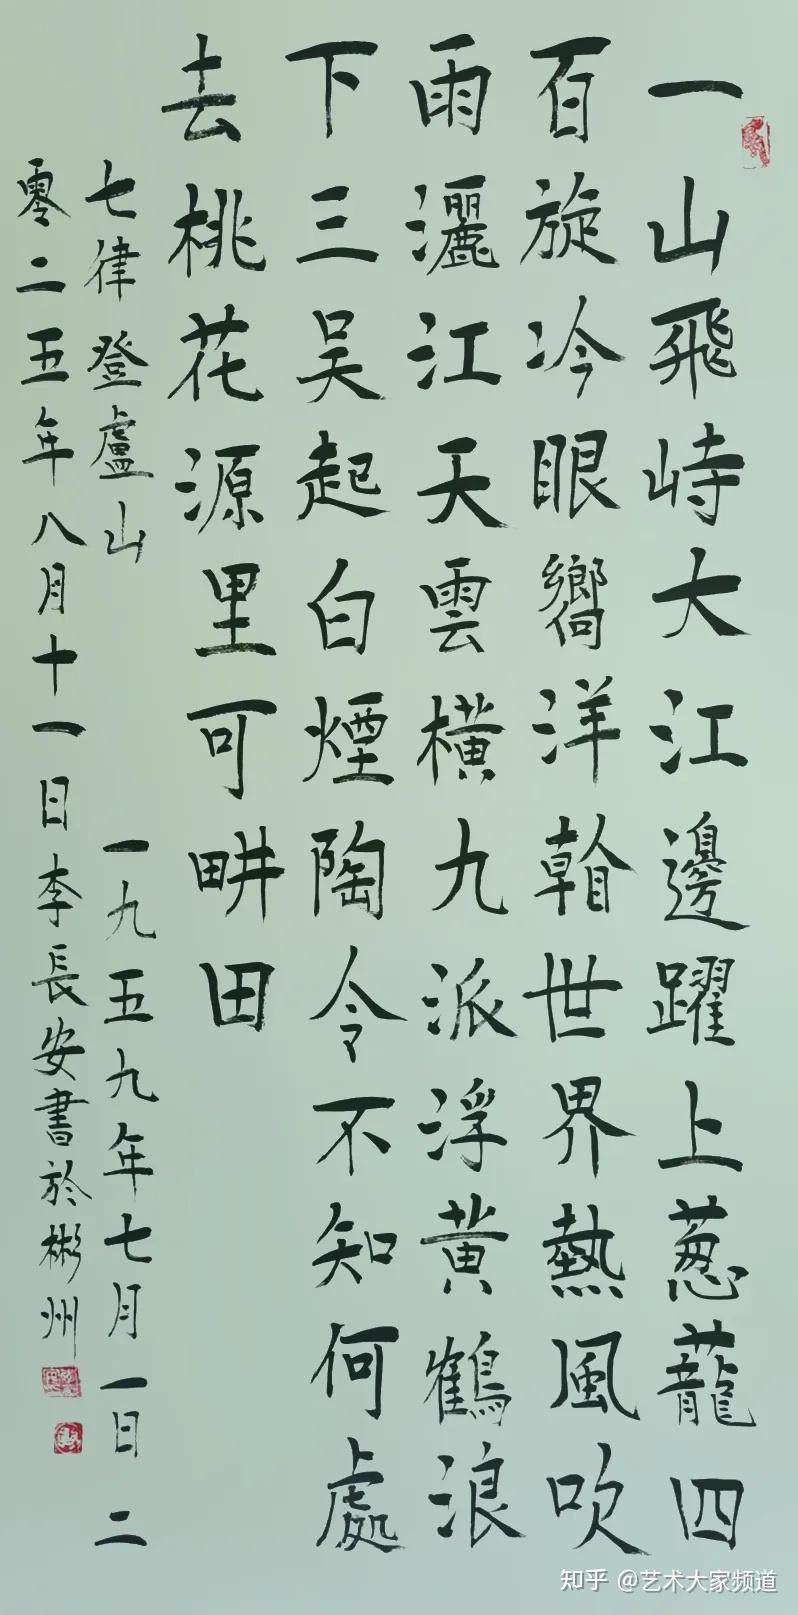 一山飛峙大江邊躍上葱蘢四
百旋冷眼嚮洋看世界熱風吹
雨灑江天雲橫九派浮黄鶴浪
下三吴起白煙陶令不知何處
去桃花源里可畊田
七律登盧山 一九五九年七月一日 二
零二五年八月十一日李長安書於彬州
知乎 @艺术大家频道